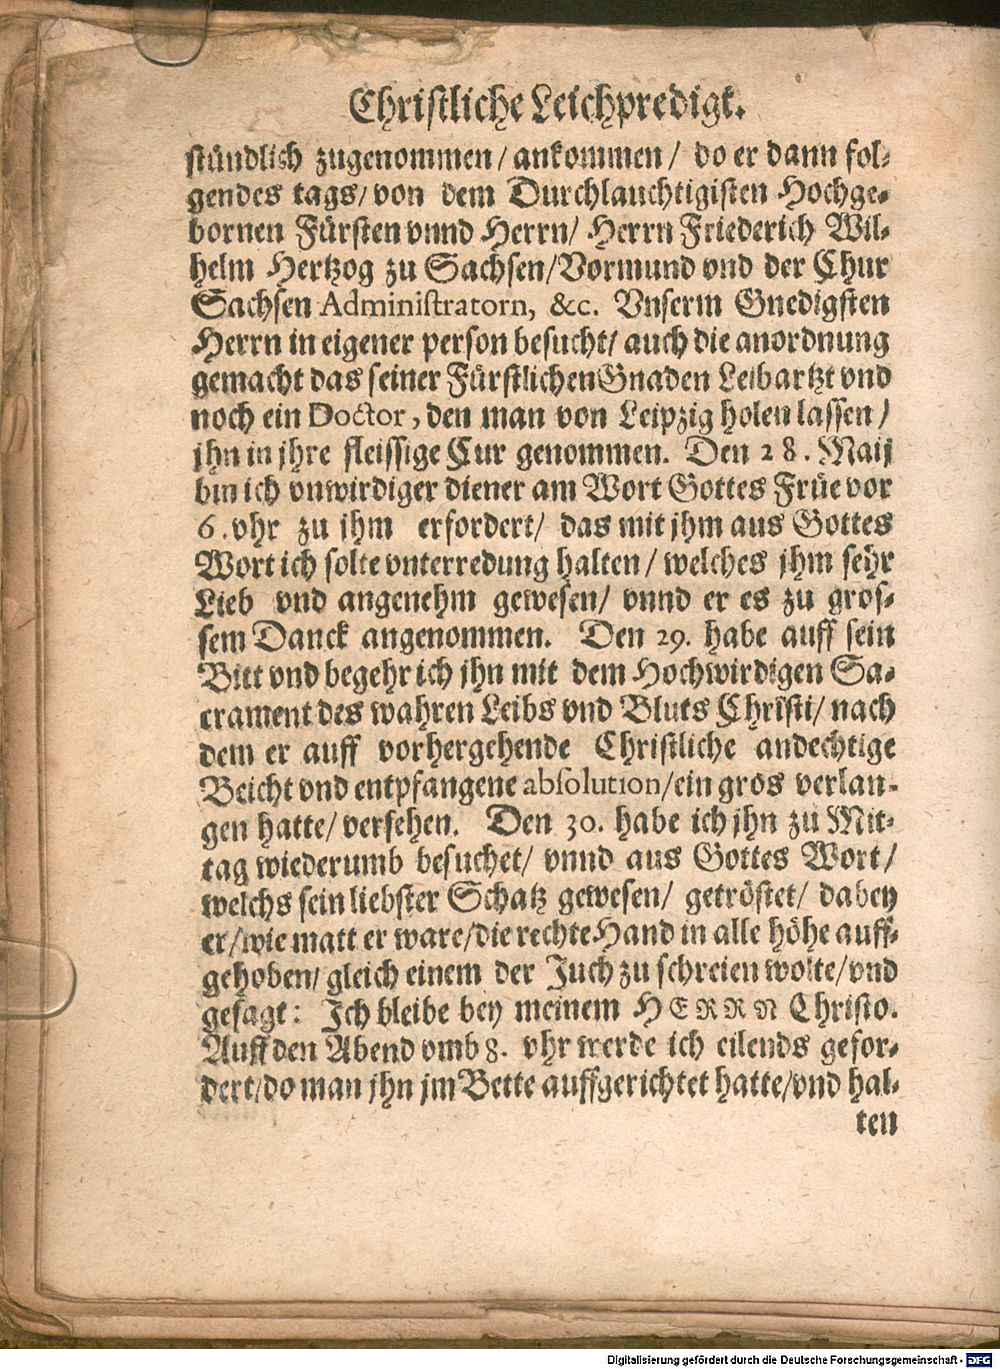 Christliche Leichpredigt.
stündlich zugenommen/ ankommen/ do er dann fol-
gendes tags/ von dem Durchlauchtigisten Hochge-
bornen Fürsten vnnd Herrn/ Herrn Friederich Wil-
helm Hertzog zu Sachsen/Vormund vnd der Chur
Sachsen Administratorn, &c. Vnserm Gnedigsten
Herrn in eigener person besucht/ auch die anordnung
gemacht das seiner Fürstlichen Gnaden Leibartzt vnd
noch ein Doctor, den man von Leipzig holen lassen/
jhn in jhre fleissige Cur genommen. Den 28. Maij
bin ich vnwirdiger diener am Wort Gottes Früe vor
6. vhr zu jhm erfordert/ das mit jhm aus Gottes
Wort ich solte vnterredung halten/ welches jhm sehr
Lieb vnd angenehm gewesen/ vnnd er es zu gros-
sem Danck angenommen. Den 29. habe auff sein
Bitt vnd begehr ich jhn mit dem Hochwirdigen Sa-
crament des wahren Leibs vnd Bluts Christi/ nach
dem er auff vorhergehende Christliche andechtige
Beicht vnd entpfangene absolution/ein gros verlan-
gen hatte/ versehen. Den 30. habe ich jhn zu Mit-
tag wiederumb besuchet/ vnnd aus Gottes Wort/
welchs sein liebster Schatz gewesen/ getröstet/ dabey
er/wie matt er ware/die rechte Hand in alle höhe auff-
gehoben/ gleich einem der Juch zu schreien wolte/vnd
gesagt: Ich bleibe bey meinem HERRN Christo.
Auff den Abend vmb 8. vhr werde ich eilends gefor-
dert/do man jhn jm Bette auffgerichtet hatte/vnd hal-
ten
Digitalisierung gefördert durch die Deutsche Forschungsgemeinschaft - DFG